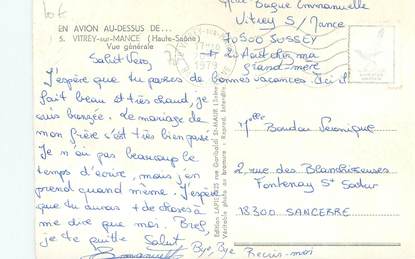 Lot
Mlle Bugue Emmanuelle
Vitrey S/Mance
70500 JUSSEY
EN AVION AU-DESSUS DE...
5. VITREY-sur-MANCE (Haute-Saône)
Vue générale
1979
chez ma
grand-mère
Salut Véro,
J'espère que tu passes de bonnes vacances. Ici il
fait beau et très chaud, je
suis bronzée. Le mariage de
mon frère s'est très bien passé.
Je n'ai pas beaucoup le
temps d'écrire, mais j'en
prend quand même. J'espère
que tu auras + de choses à
me dire que moi. Bref,
je te quitte Salut
Emmanuelle
Bye, Bye Récris-moi
Edition LAPIE
Véritable photo au bromure - Reprod. Interdite
Melle Boudou Véronique
2, rue des Blanchisseuses
Fontenay St Satur
18300 SANCERRE